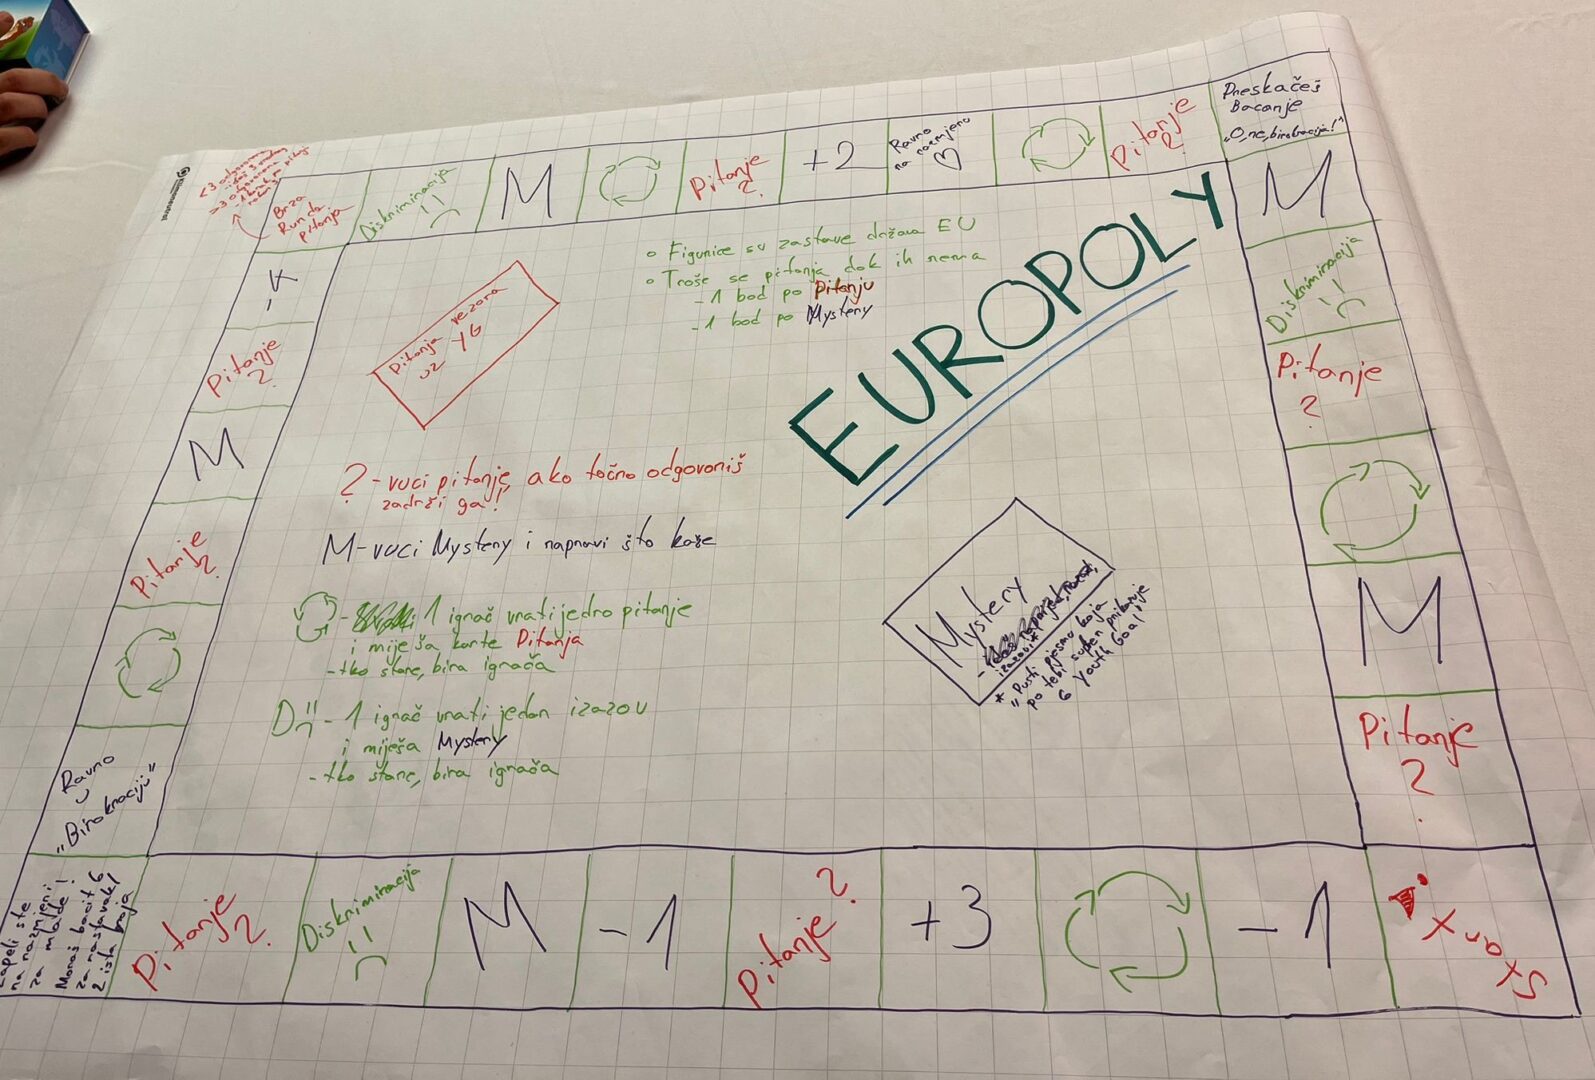 Brza
Runda
pitanja
Diskriminacija
M
Pitanje
?
+2
Ravno
na razmjenu
Pitanje
?
Preskačeš
Bacanje
„O, ne, birokracija!"
M
Diskriminacija
Pitanje
?
M
Pitanje
?
EUROPOLY
◦ Figurice su zastave država EU
◦ Troše se pitanja dok ih nema
- 1 bod po Pitanju
- 1 bod po Mystery
Pitanja vezana
uz YG
? - vuci pitanje, ako točno odgovoriš
zadrži ga!
M - vuci Mystery i napravi što kaže
- 1 igrač vrati jedno pitanje
i miješa karte Pitanja
- tko stane, bira igrača
D - 1 igrač vrati jedan izazov
i miješa Mystery
- tko stane, bira igrača
Mystery
izazovi*
* „Pusti pjesmu koja
po tebi super prikazuje
6 Youth Goal"
Pitanje
?
M
Pitanje
?
Ravno
u
„Birokraciju"
Zapeli ste
na razmjeni
za mlade!
Moraš bacit 6
za nastavak/
2 ista broja
Pitanje
?
Diskriminacija
M
-1
Pitanje
?
+3
-1
START